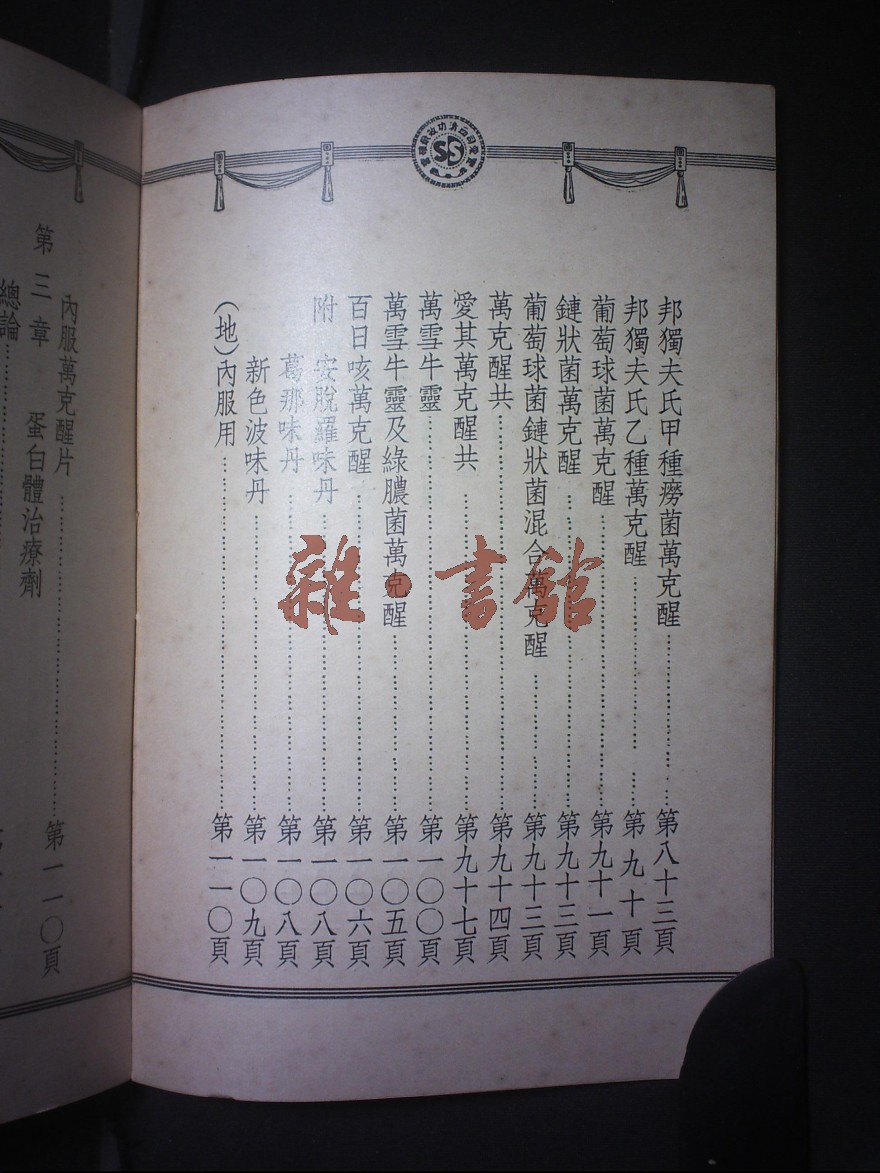 邦獨夫氏甲種癆菌萬克醒……第八十三頁
邦獨夫氏乙種萬克醒……第九十頁
葡萄球菌萬克醒……第九十一頁
鏈狀菌萬克醒……第九十三頁
葡萄球菌鏈狀菌混合萬克醒……第九十三頁
萬克醒共……第九十四頁
愛其萬克醒共……第九十七頁
萬雪牛靈……第一〇〇頁
萬雪牛靈及綠膿菌萬克醒……第一〇五頁
百日咳萬克醒……第一〇六頁
附 安脫羅味丹……第一〇八頁
葛那味丹……第一〇八頁
新色波味丹……第一〇九頁
(地)內服用……第一一〇頁
內服萬克醒片……第一一〇頁
第三章 蛋白體治療劑
總論……
雜·書館